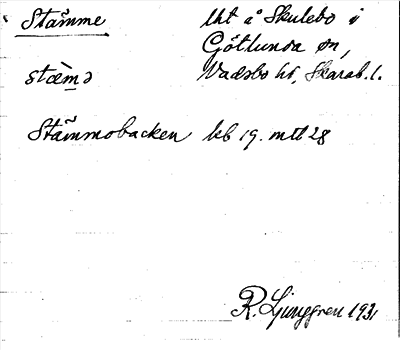 Stämme lht å Skulebo i
Götlunda sn,
stæ̀m̲ə Vadsbo hd, Skarab. l.
Stämmobacken kb 19. mtl 28
R. Ljunggren 1931